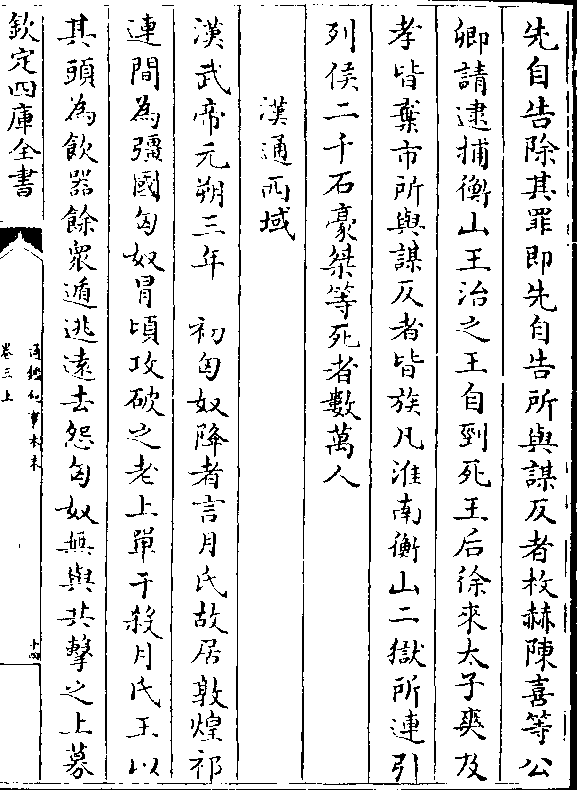 先自告除其罪即先自告所與謀反者枚赫陳喜等公
卿請逮捕衡山王治之王自剄死王后徐來太子爽及
孝皆棄市所與謀反者皆族凡淮南衡山二獄所連引
列侯二千石豪桀等死者數萬人
漢通西域
漢武帝元朔三年 初匈奴降者言月氏故居敦煌祁
連間為彊國匈奴冒頓攻破之老上單于殺月氏王以
其頭為飲器餘衆遁逃遠去怨匈奴無與共擊之上募
欽定四庫全書
通鑑紀事本末
卷三上
十四